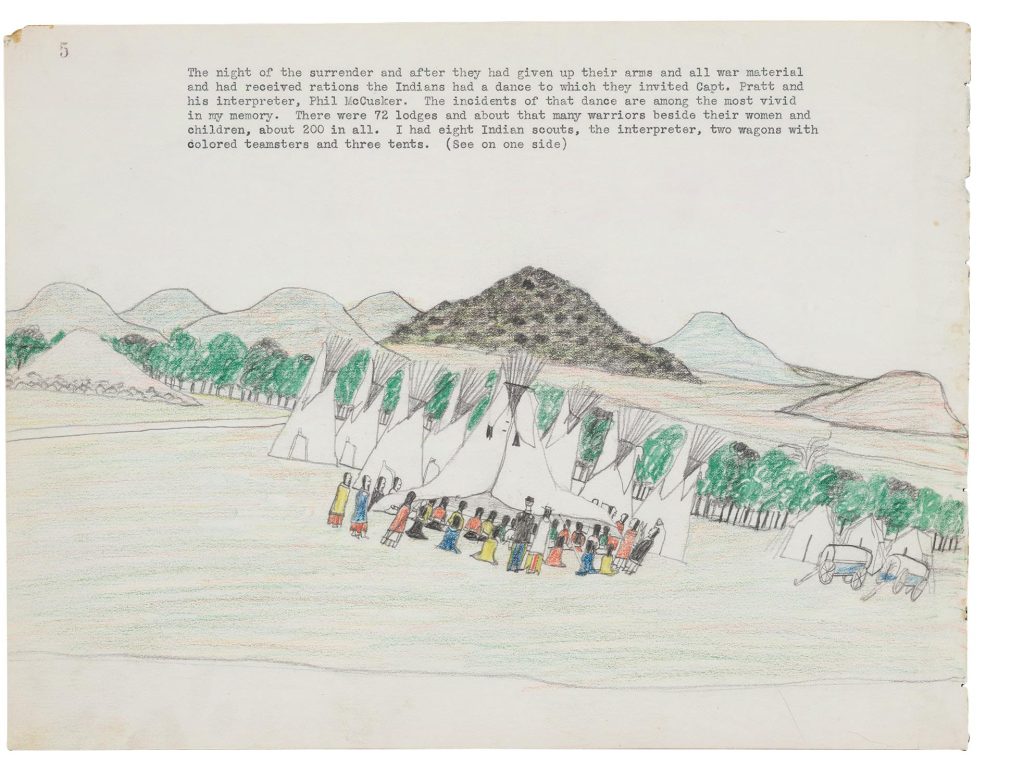 5
The night of the surrender and after they had given up their arms and all war material
and had received rations the Indians had a dance to which they invited Capt. Pratt and
his interpreter, Phil McCusker. The incidents of that dance are among the most vivid
in my memory. There were 72 lodges and about that many warriors beside their women and
children, about 200 in all. I had eight Indian scouts, the interpreter, two wagons with
colored teamsters and three tents. (See on one side)